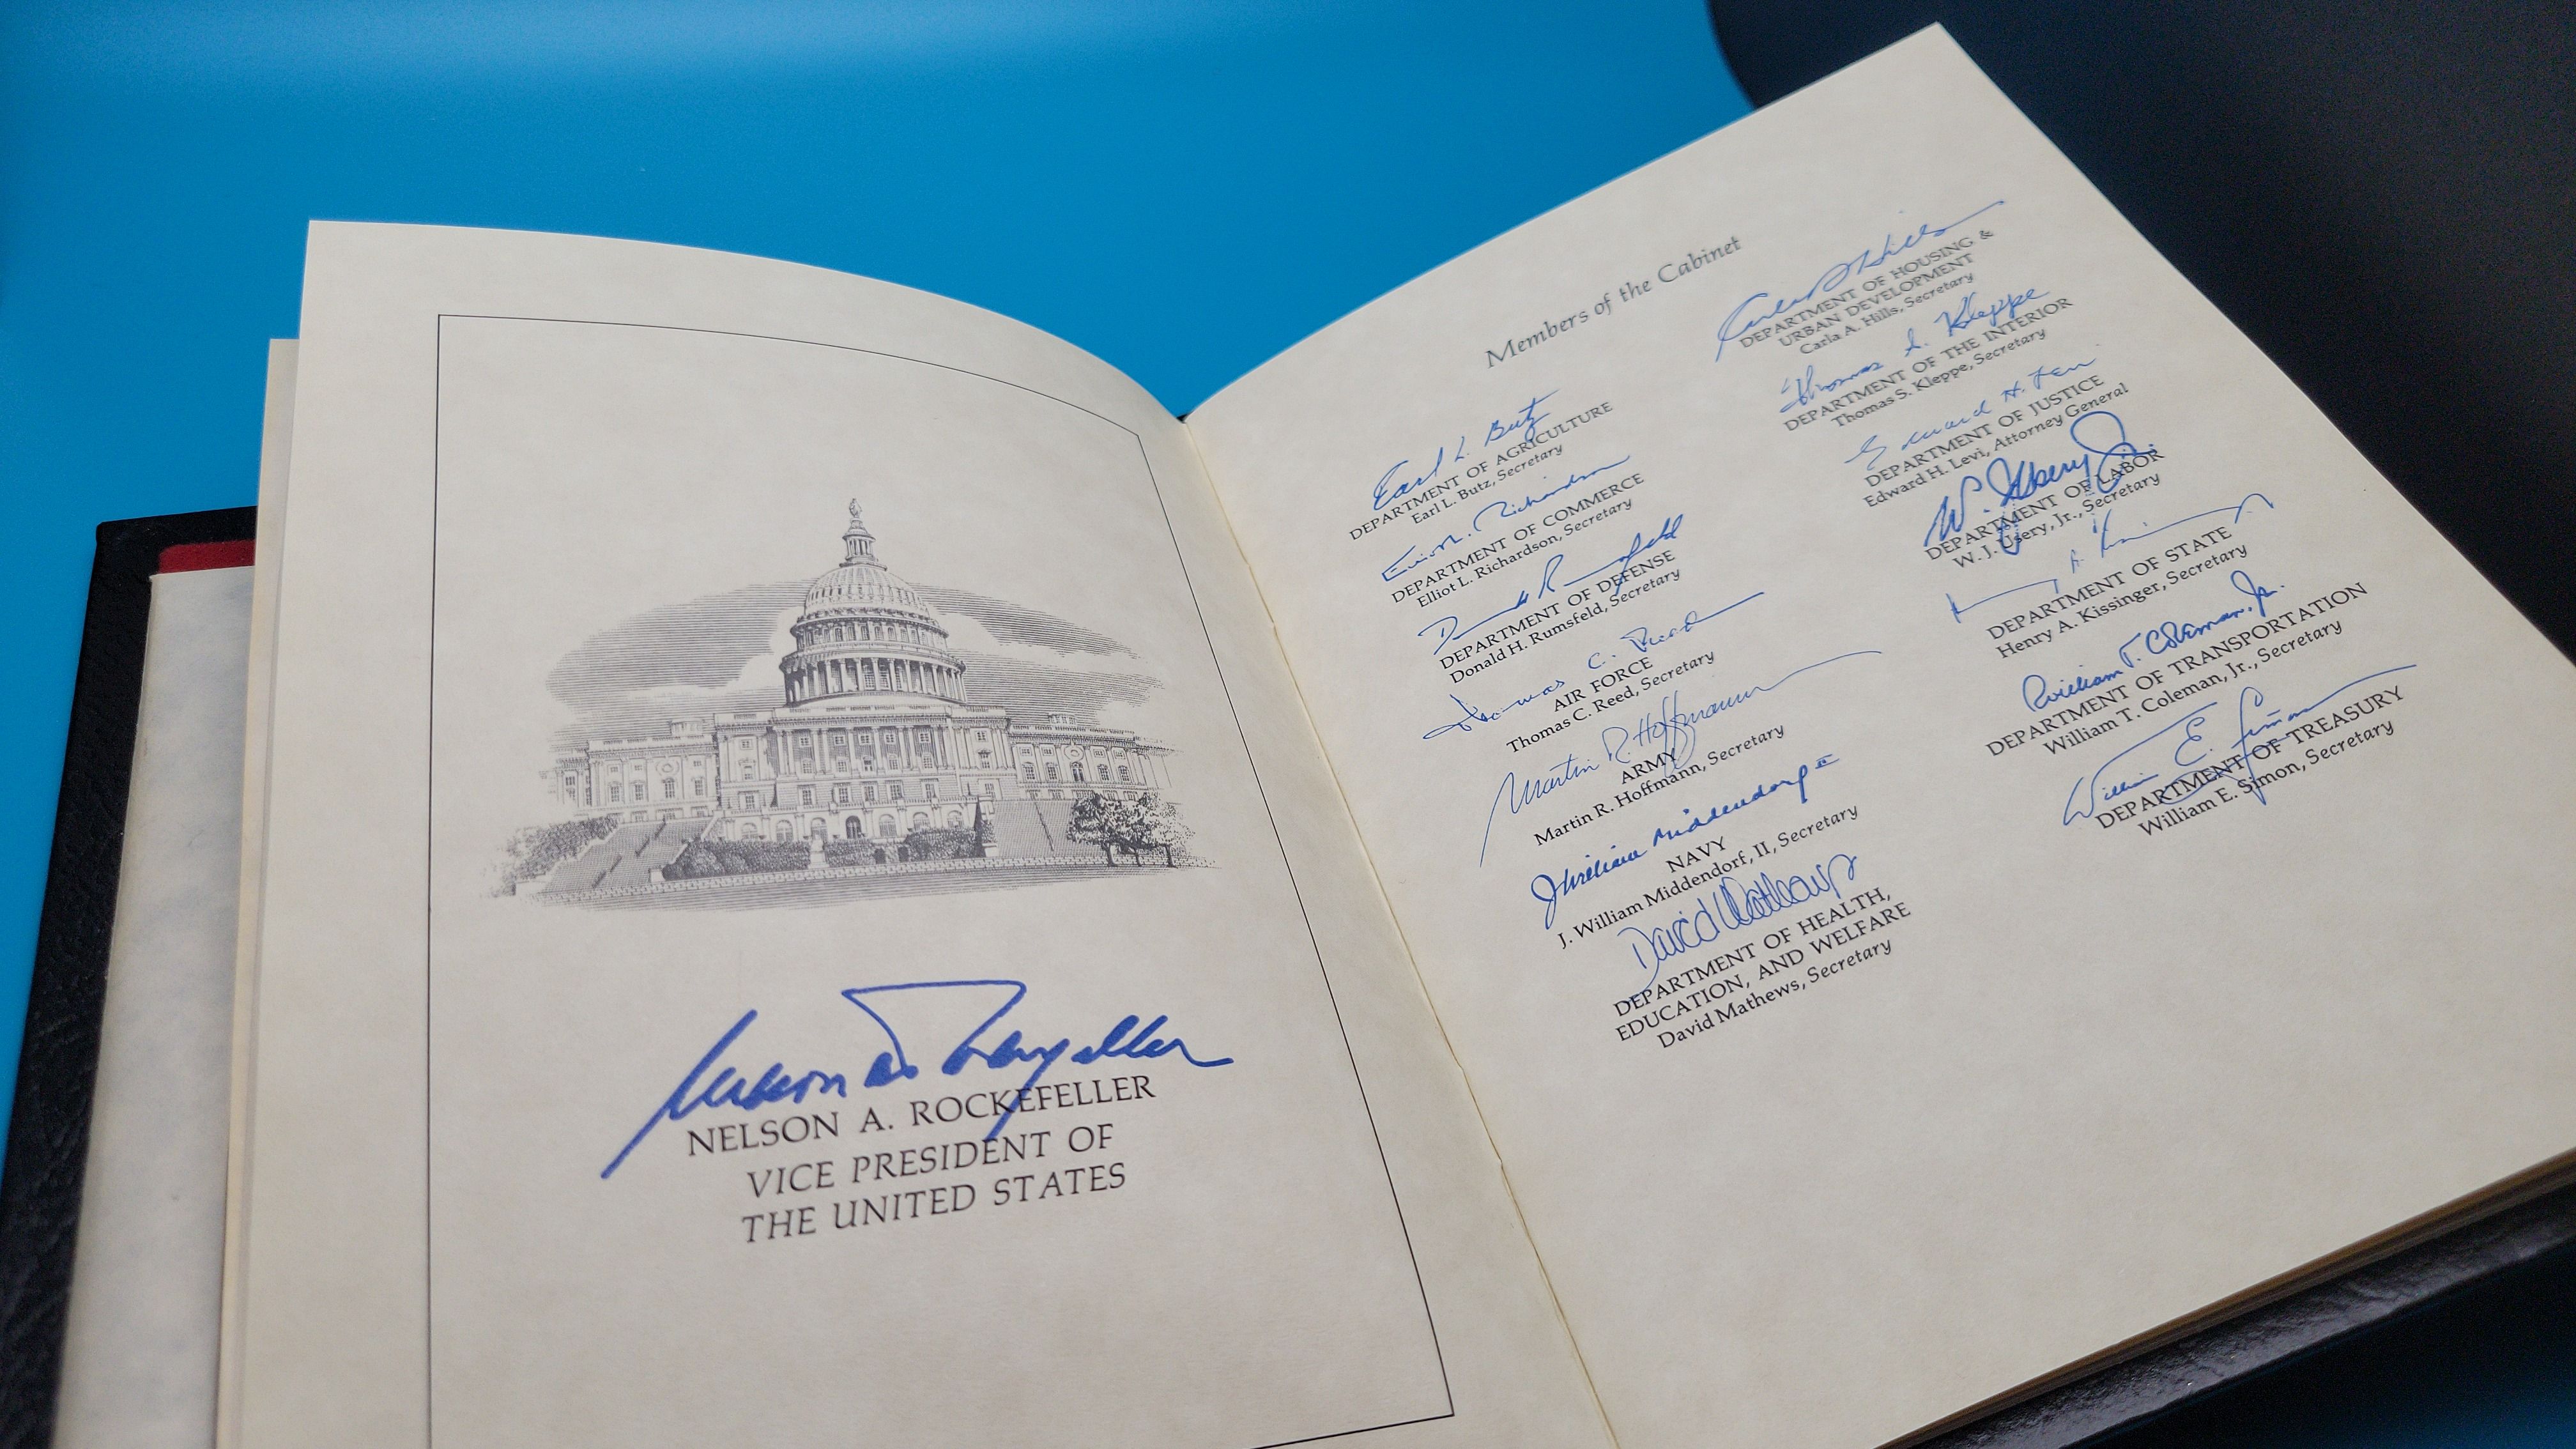 Nelson A Rockefeller
NELSON A. ROCKEFELLER
VICE PRESIDENT OF
THE UNITED STATES
Members of the Cabinet
Earl L. Butz
DEPARTMENT OF AGRICULTURE
Earl L. Butz, Secretary
Richardson
DEPARTMENT OF COMMERCE
Elliot L. Richardson, Secretary
Donald Rumsfeld
DEPARTMENT OF DEFENSE
Donald H. Rumsfeld, Secretary
Thomas C. Reed
AIR FORCE
Thomas C. Reed, Secretary
Martin R. Hoffmann
ARMY
Martin R. Hoffmann, Secretary
J William Middendorf II
NAVY
J. William Middendorf, II, Secretary
David Mathews
DEPARTMENT OF HEALTH,
EDUCATION, AND WELFARE
David Mathews, Secretary
Carla A Hills
DEPARTMENT OF HOUSING &
URBAN DEVELOPMENT
Carla A. Hills, Secretary
Thomas S. Kleppe
DEPARTMENT OF THE INTERIOR
Thomas S. Kleppe, Secretary
Edward H. Levi
DEPARTMENT OF JUSTICE
Edward H. Levi, Attorney General
W. J. Usery Jr.
DEPARTMENT OF LABOR
W. J. Usery, Jr., Secretary
DEPARTMENT OF STATE
Henry A. Kissinger, Secretary
William T. Coleman, Jr.
DEPARTMENT OF TRANSPORTATION
William T. Coleman, Jr., Secretary
William E. Simon
DEPARTMENT OF TREASURY
William E. Simon, Secretary